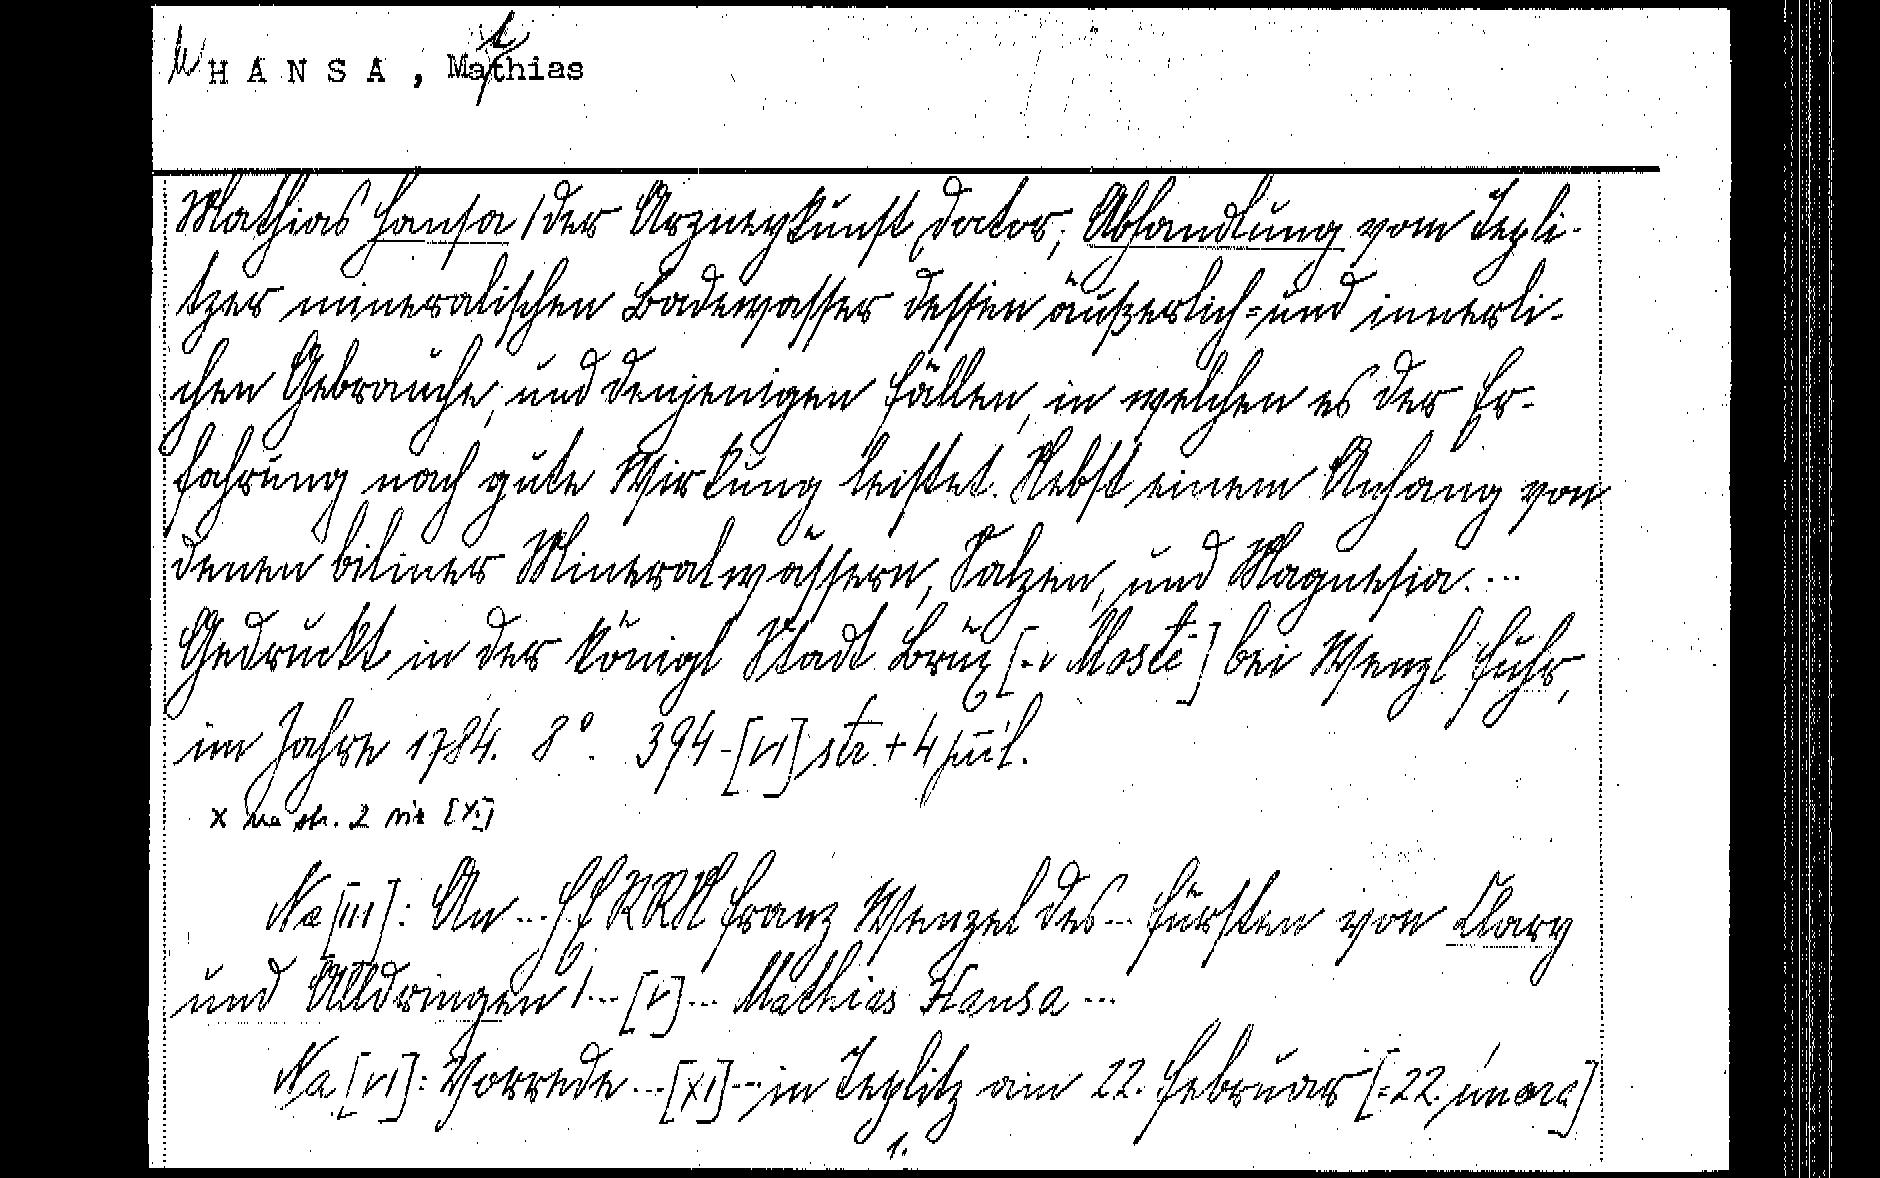 HANSA, Mathias
Mathias Hansa / der Arzneykunst Doctor, Abhandlung vom Tepli-
tzer mineralischen Badewasser dessen äußerlich= und innerli-
chen Gebrauche, und denjenigen Fällen, in welchen es der Er-
fahrung nach gute Wirkung leistet. Nebst einem Anhang von
denen biliner Mineralwässern, Salzen, und Magnesia. ...
Gedruckt in der königl Stadt Brüx [= v Mostě] bei Wenzl Fuhr,
im Jahre 1784. 8°. 394 - [VI] str. + 4 příl.
x na str. 2 viz [XI]
Na [III]: An ... Franz Wenzel des ... Fürsten von Clary
und Alldringen / ... [V] ... Mathias Hansa ...
Na [VI]: Vorrede ... [XI] ... in Teplitz am 22. Februar [=22. února]
1.